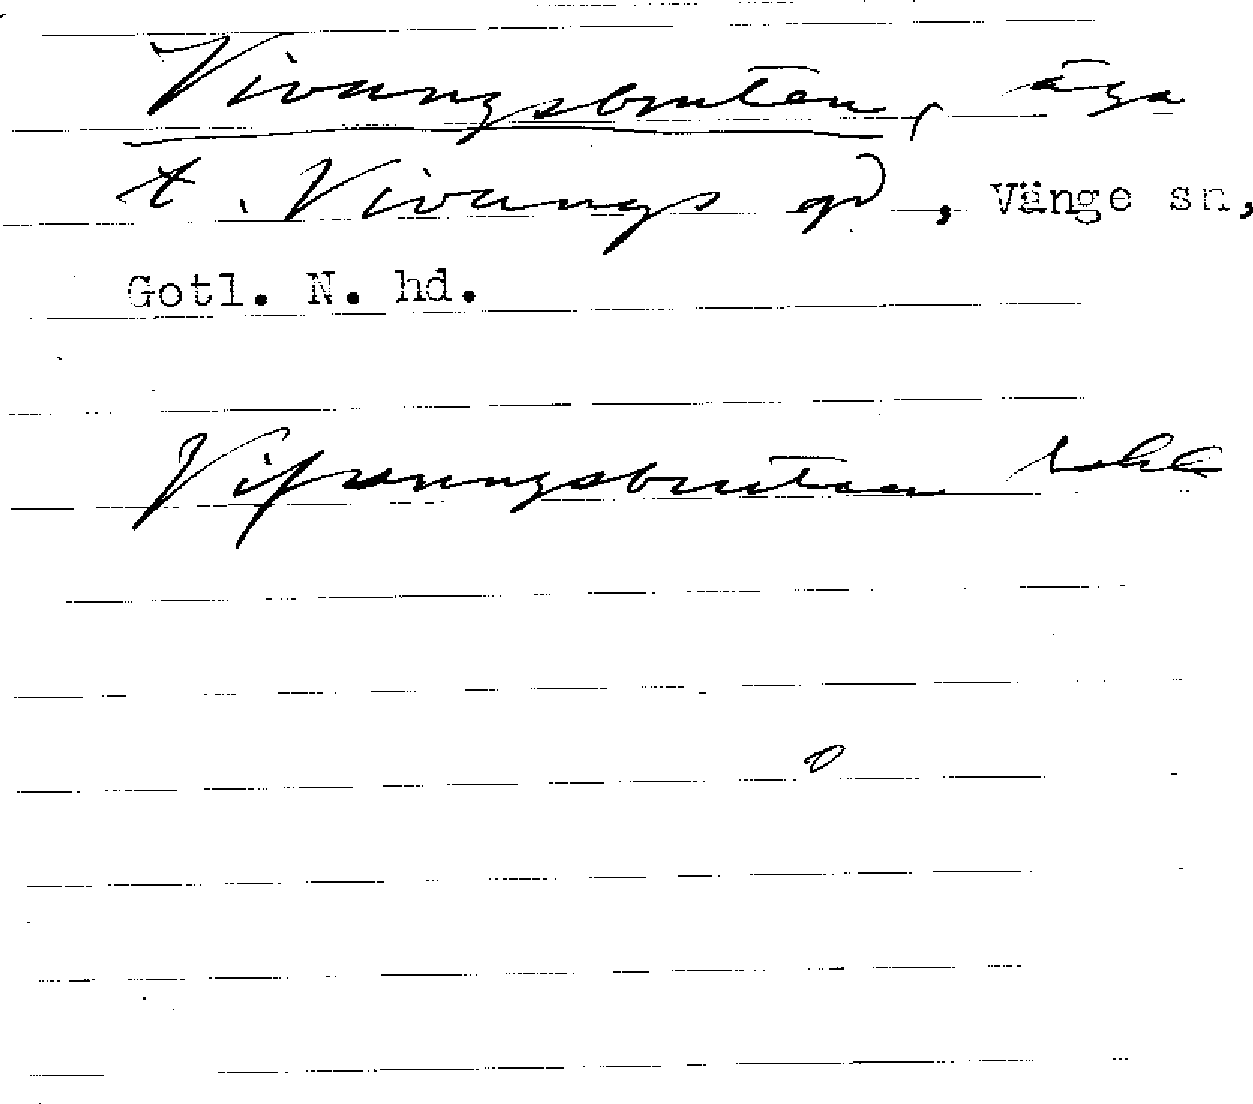 Vivungsbruten, äga
t. Vivungs gd, Vänge sn,
Gotl. N. hd.
Vifvungsbruten